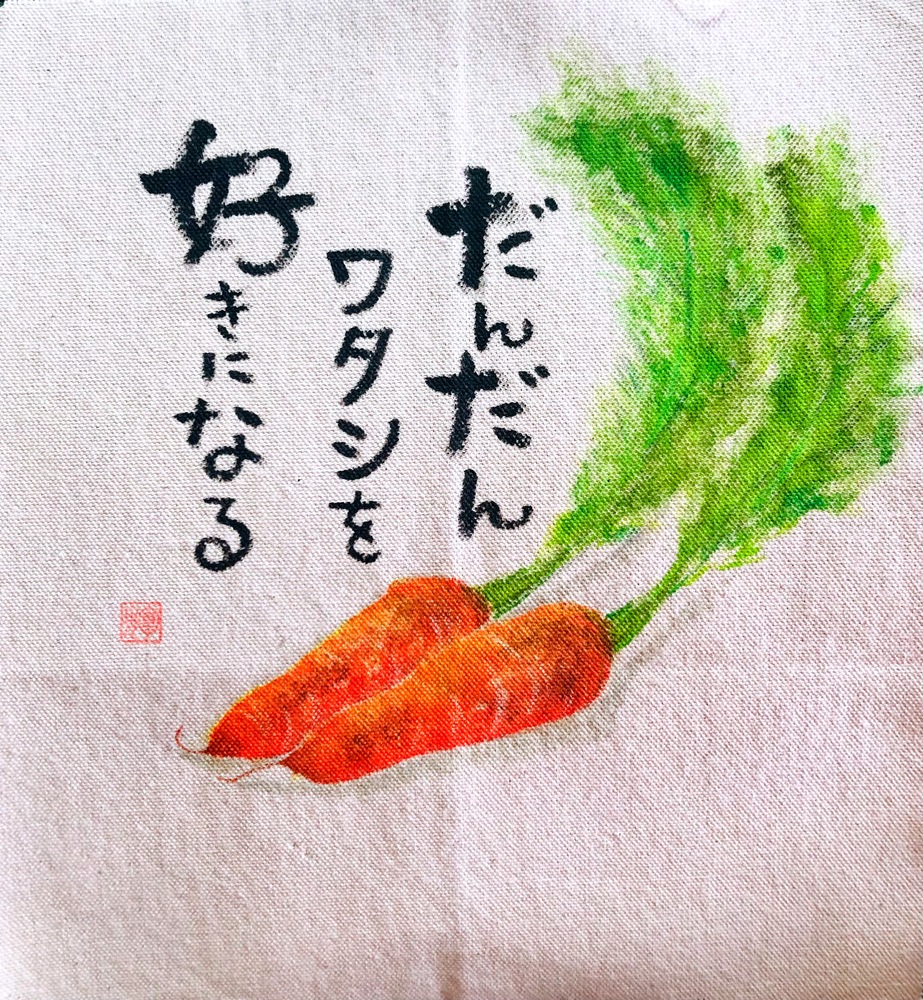 だんだん
ワタシを
好きになる